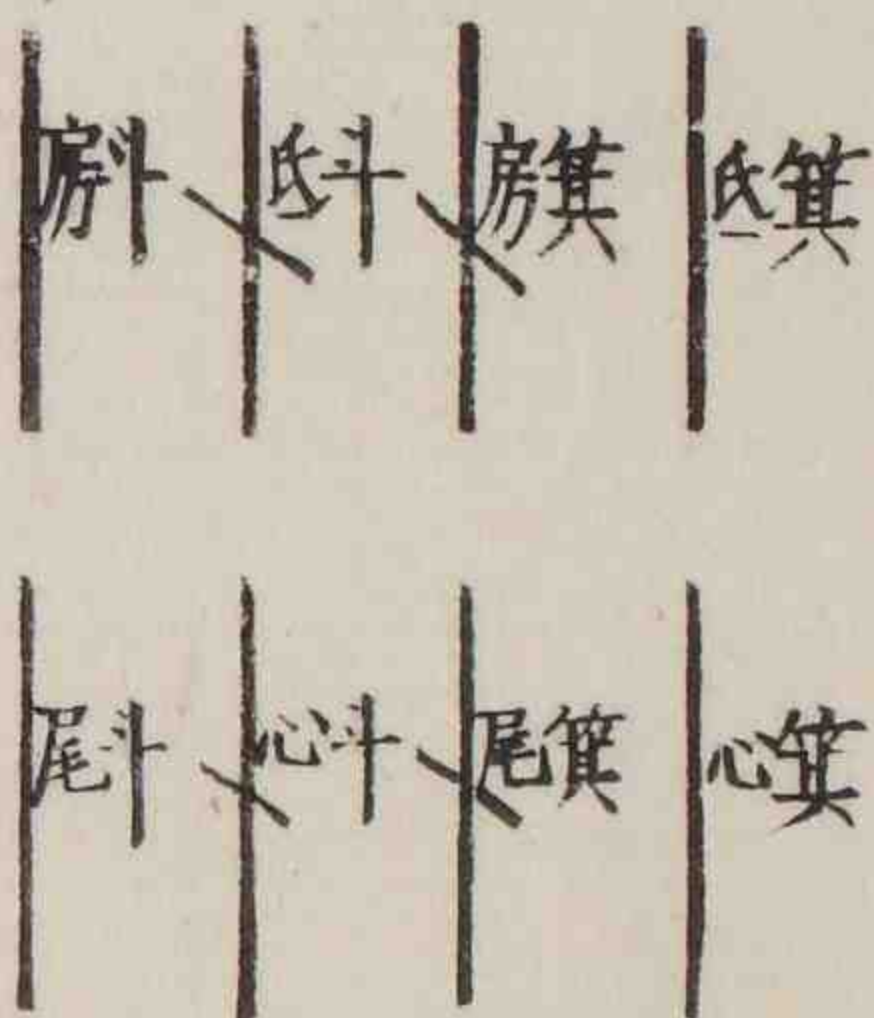 氐箕
房箕
氐斗
房斗
心箕
尾箕
心斗
尾斗